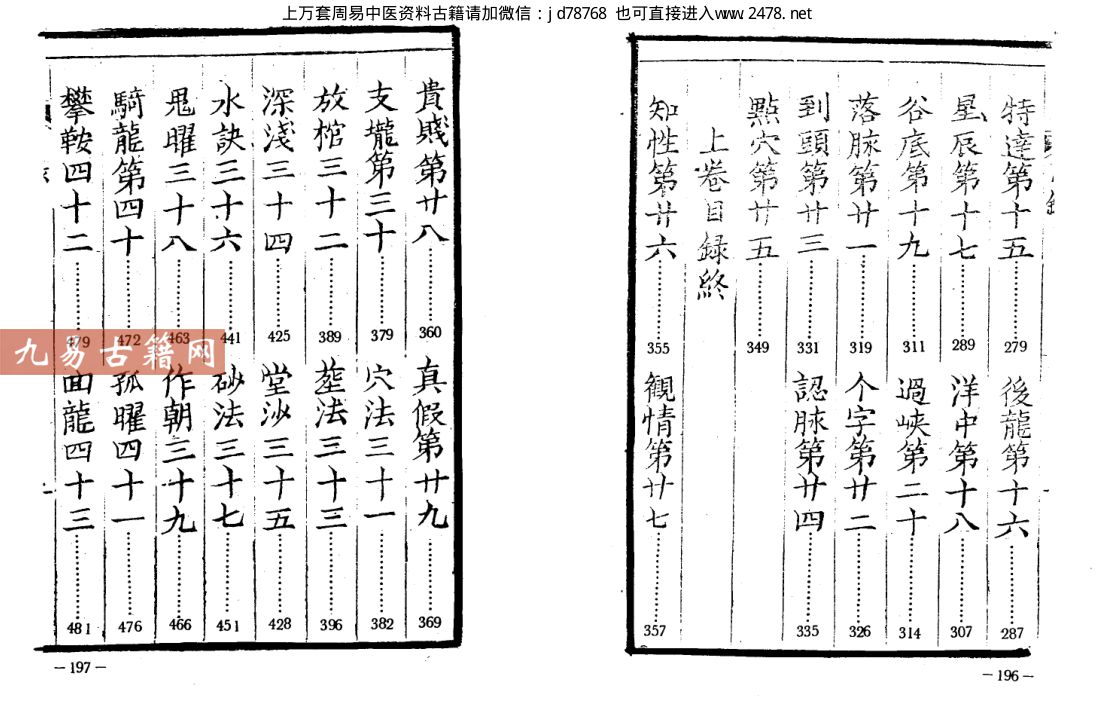 上万套周易中医资料古籍请加微信：jd78768 也可直接进入www.2478.net
特達第十五……279
後龍第十六……287
星辰第十七……289
洋中第十八……307
谷底第十九……311
過峽第二十……314
落脉第廿一……319
个字第廿二……326
到頭第廿三……331
認脉第廿四……335
點穴第廿五……349
上卷目録終
知性第廿六……355
觀情第廿七……357
—196—
貴賎第廿八……360
真假第廿九……369
支壠第三十……379
穴法三十一……382
放棺三十二……389
塟法三十三……396
深淺三十四……425
堂沙三十五……428
水訣三十六……441
砂法三十七……451
鬼曜三十八……463
作朝三十九……466
騎龍第四十……472
孤曜四十一……476
攀鞍四十二……479
面龍四十三……481
—197—
九易古籍网